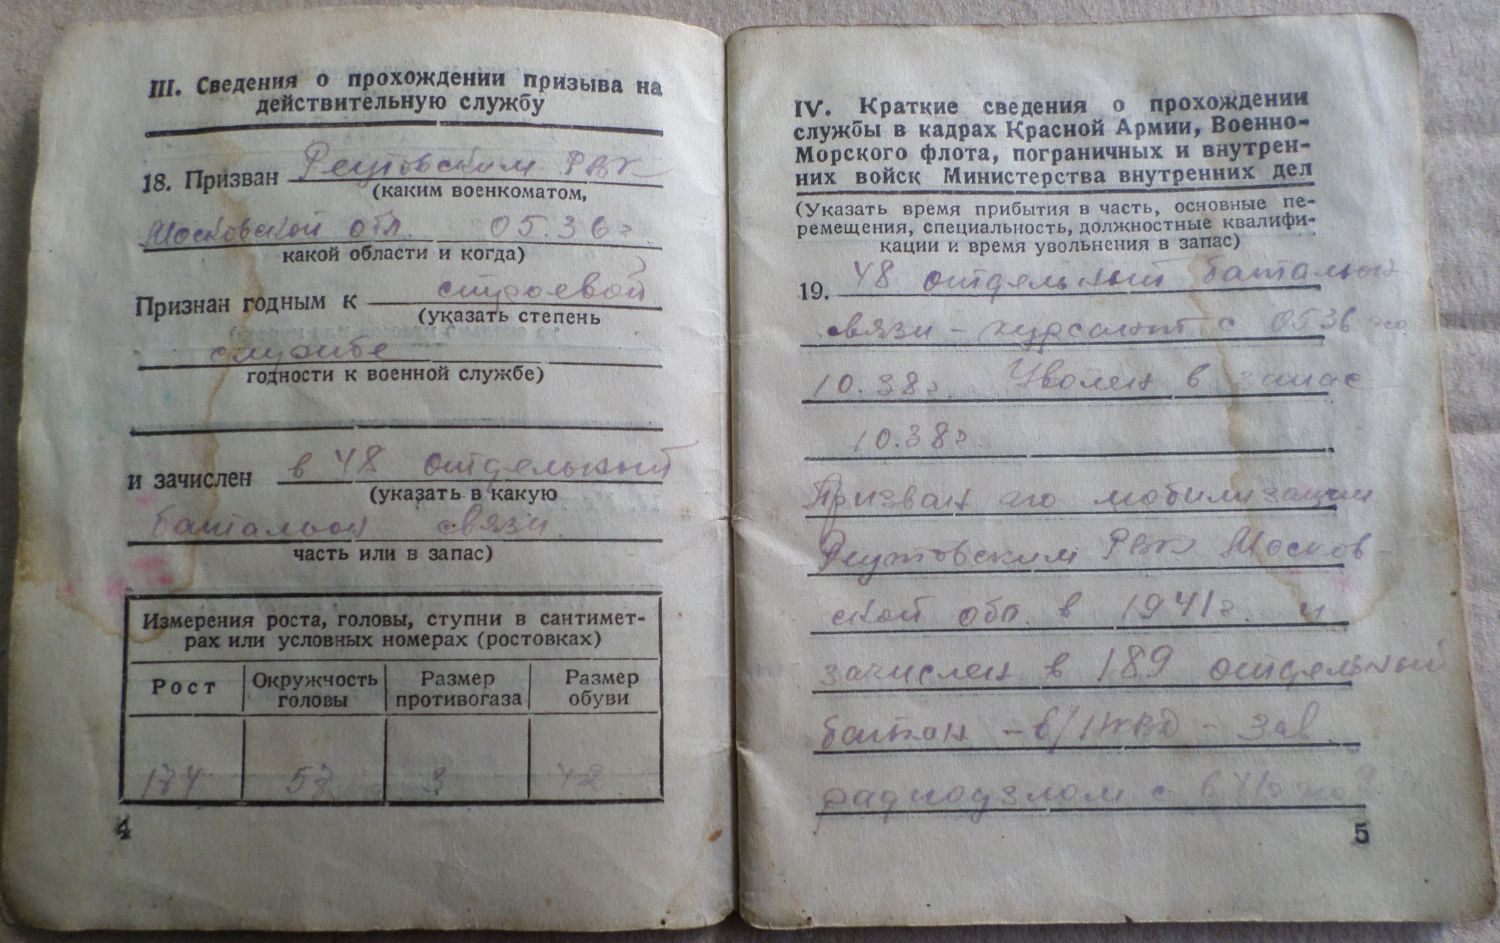 III. Сведения о прохождении призыва на
действительную службу
18. Призван Реутовским РВК
(каким военкоматом,
Московской обл. 05.36г.
какой области и когда)
Признан годным к строевой
(указать степень
службе
годности к военной службе)
и зачислен в 48 отдельный
(указать в какую
батальон связи
часть или в запас)
Измерения роста, головы, ступни в сантимет-
рах или условных номерах (ростовках)
Рост Окружность головы Размер противогаза Размер обуви
174 57 3 42
4
IV. Краткие сведения о прохождении
службы в кадрах Красной Армии, Военно-
Морского флота, пограничных и внутрен-
них войск Министерства внутренних дел
(Указать время прибытия в часть, основные пе-
ремещения, специальность, должностные квалифи-
кации и время увольнения в запас)
19. 48 отдельный батальон
связи - курсант с 05 36 по
10.38г. Уволен в запас
10.38г.
Призван по мобилизации
Реутовским РВК Москов-
ской обл. в 1941г. и
зачислен в 189 отдельный
батал - в/НКВД - Зав.
радиоузлом с 41г по
5